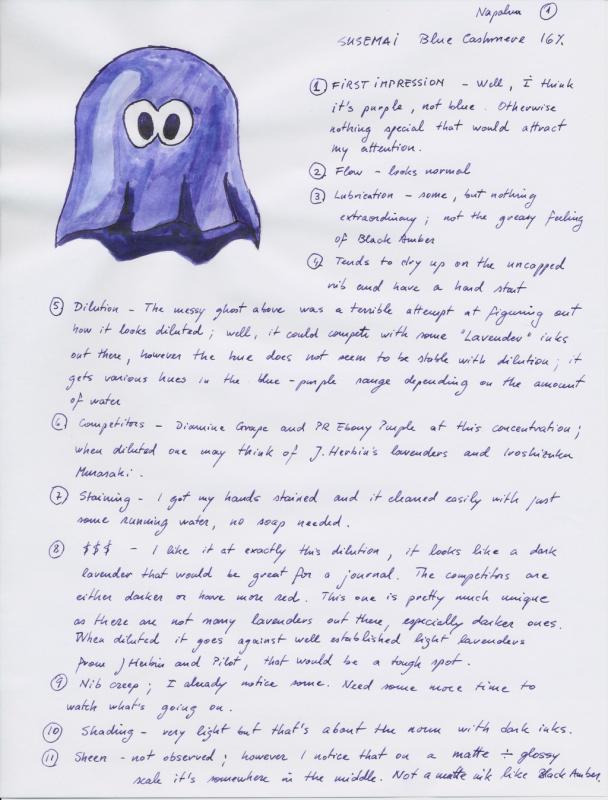 Napalm 1
SUSEMAI Blue Cashmere 16%
1 FIRST IMPRESSION - Well, I think
it's purple, not blue. Otherwise
nothing special that would attract
my attention.
2 Flow - looks normal
3 Lubrication - some, but nothing
extraordinary; not the greasy feeling
of Black Amber
4 Tends to dry up on the uncapped
nib and have a hard start
5 Dilution - The messy ghost above was a terrible attempt at figuring out
how it looks diluted; well, it could compete with some "Lavender" inks
out there, however the hue does not seem to be stable with dilution; it
gets various hues in the blue-purple range depending on the amount
of water
6 Competitors - Diamine Grape and PR Ebony Purple at this concentration;
when diluted one may think of J. Herbin's lavenders and Iroshizuku
Murasaki.
7 Staining - I got my hands stained and it cleaned easily with just
some running water, no soap needed.
8 $$$ - I like it at exactly this dilution, it looks like a dark
lavender that would be great for a journal. The competitors are
either darker or have more red. This one is pretty much unique
as there are not many lavenders out there, especially darker ones.
When diluted it goes against well established light lavenders
from J Herbin and Pilot, that would be a tough spot.
9 Nib creep; I already notice some. Need some more time to
watch what's going on.
10 Shading - very light but that's about the norm with dark inks.
11 Sheen - not observed; however I notice that on a matte ÷ glossy
scale it's somewhere in the middle. Not a matte ink like Black Amber.